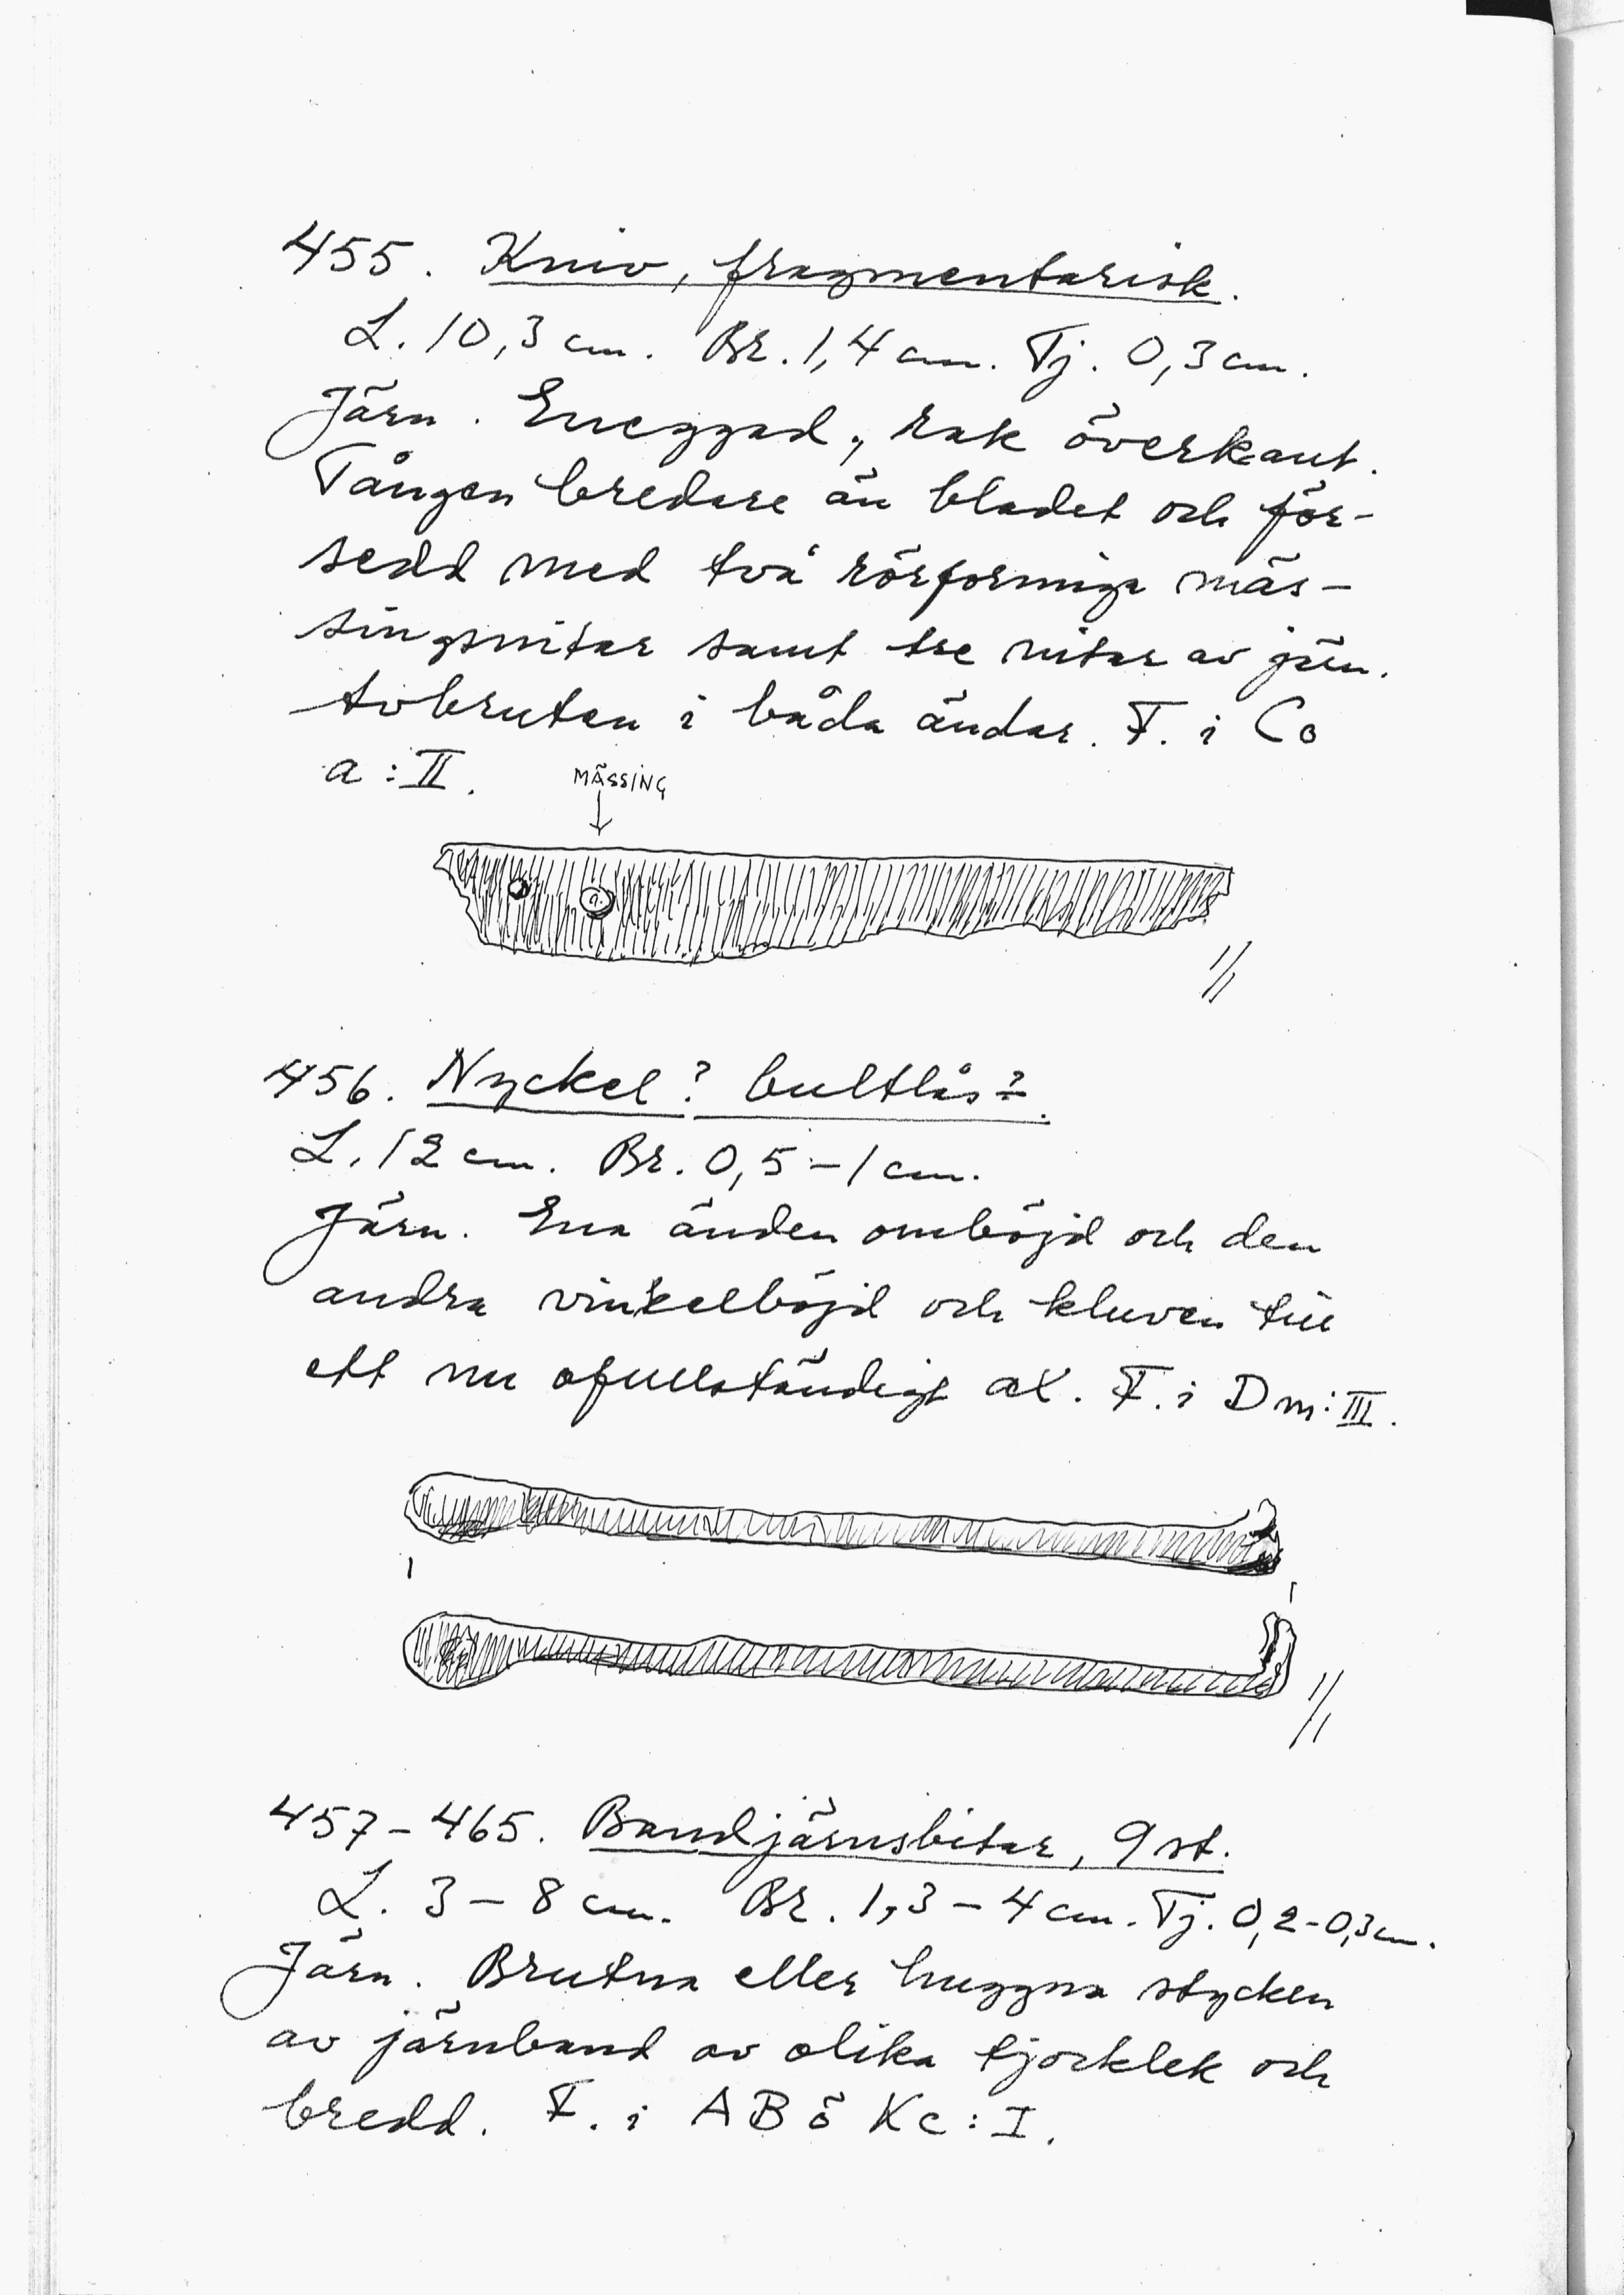 455. Kniv, fragmentarisk.
L. 10,3 cm. Br. 1,4 cm. Tj. 0,3 cm.
Järn. Eneggad, rak överkant.
Tången bredare än bladet och för-
sedd med två rörformiga mäs-
singsnitar samt tre nitar av järn.
Avbruten i båda ändar. F. i Co
a:II.
MÄSSING
1/1
456. Nyckel? bultlås?.
L. 12 cm. Br. 0,5-1 cm.
Järn. Ena änden ombøjd och den
andra vinkelböjd och kluven till
ett nu ofullständigt ax. F. i Dm:III.
1/1
457-465. Bandjärnsbitar, 9 st.
L. 3-8 cm. Br. 1,3-4 cm. Tj. 0,2-0,3 cm.
Järn. Brutna eller huggna stycken
av järnband av olika tjocklek och
bredd. F. i ABö Kc:I.